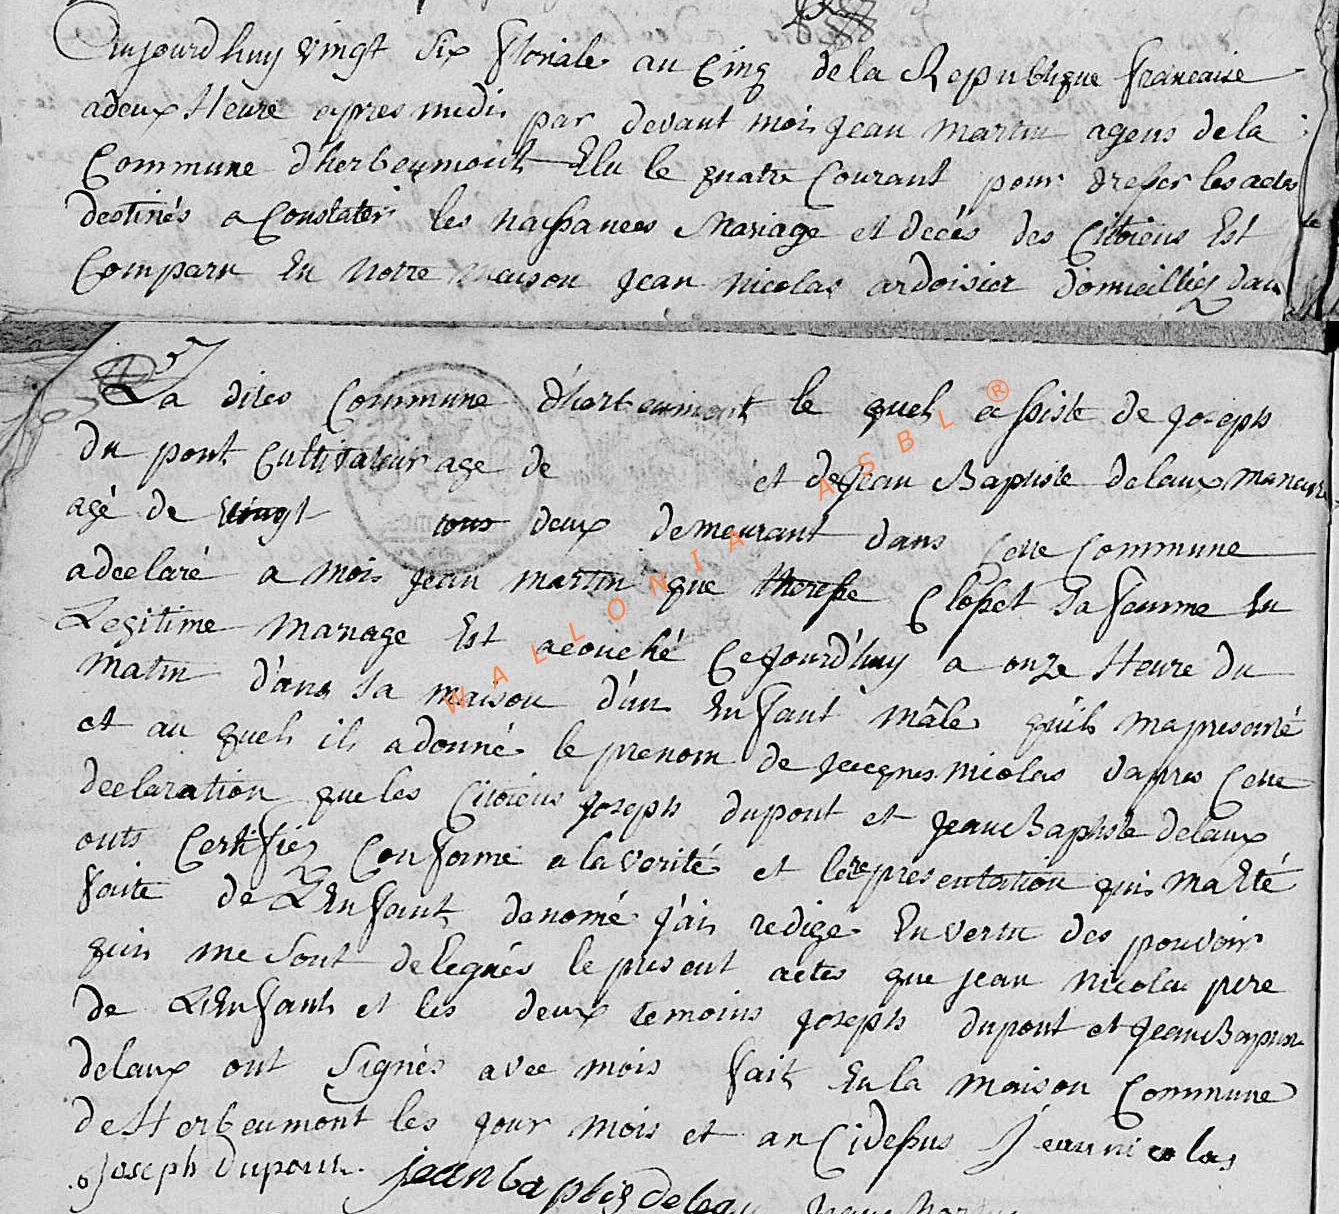 Aujourdhuy vingt Six floriale au Cinq de la Republique francaise
a deux Heure apres midis par devant mois jean martin agens de la
Commune d'herbeumont Elu le quatre Courant pour dresser les actes
destinés a Constater les naissances Mariage et décés des Citoiens Est
Comparu En notre maison jean nicolas ardoisier domicilliés dans
57
La dites Commune d'herbeumont le quel assiste de joseph
du pont Cultivateur age de et de jean Baptiste delaux manœuvre
agé de vingt tous deux demeurant dans Cette Commune
a declaré a mois jean martin que therese Closset Sa femme En
Legitime mariage Est acouché Cejourd'huy a onze Heure du
matin d'ans Sa maison d'un Enfant mâle qu'ils ma presenté
et au quels ils a donné le prenom de jacques nicolas dapres Cette
declaration que les Citoiens joseph dupont et jean Baptiste delaux
onts Certifiez Conforme a la verité et la representation quis ma Eté
faite de L'Enfant denomé j'ais redigé En vertu des pouvoir
quis me Sont delegués le present actes que jean nicolas pere
de L'Enfants et les deux temoins joseph dupont et jean Baptiste
delaux ont Signés avec mois fait En la maison Commune
de Herbeumont les jour mois et an Cidessus Jean nicolas
Joseph Dupont. jean baptis delau jean Martin
WALLONIA ASBL ®